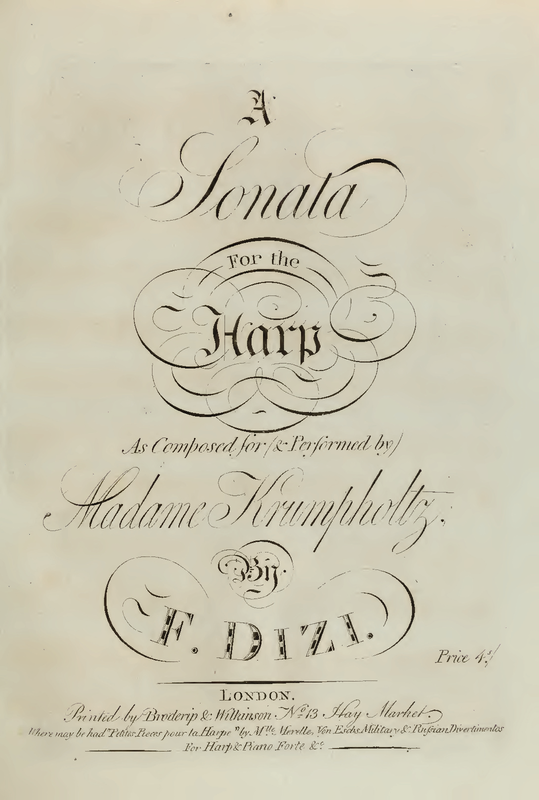 A
Sonata
For the
Harp
As Composed for (& Performed by)
Madame Krumpholtz,
By
F. DIZI.
Price 4s/
LONDON.
Printed by Broderip & Wilkinson No. 13 Hay Market.
Where may be had Petites Pieces pour la Harpe by Mlle. Merelle, Von Eschs Military & Russian Divertimentos
For Harp & Piano Forte &c.